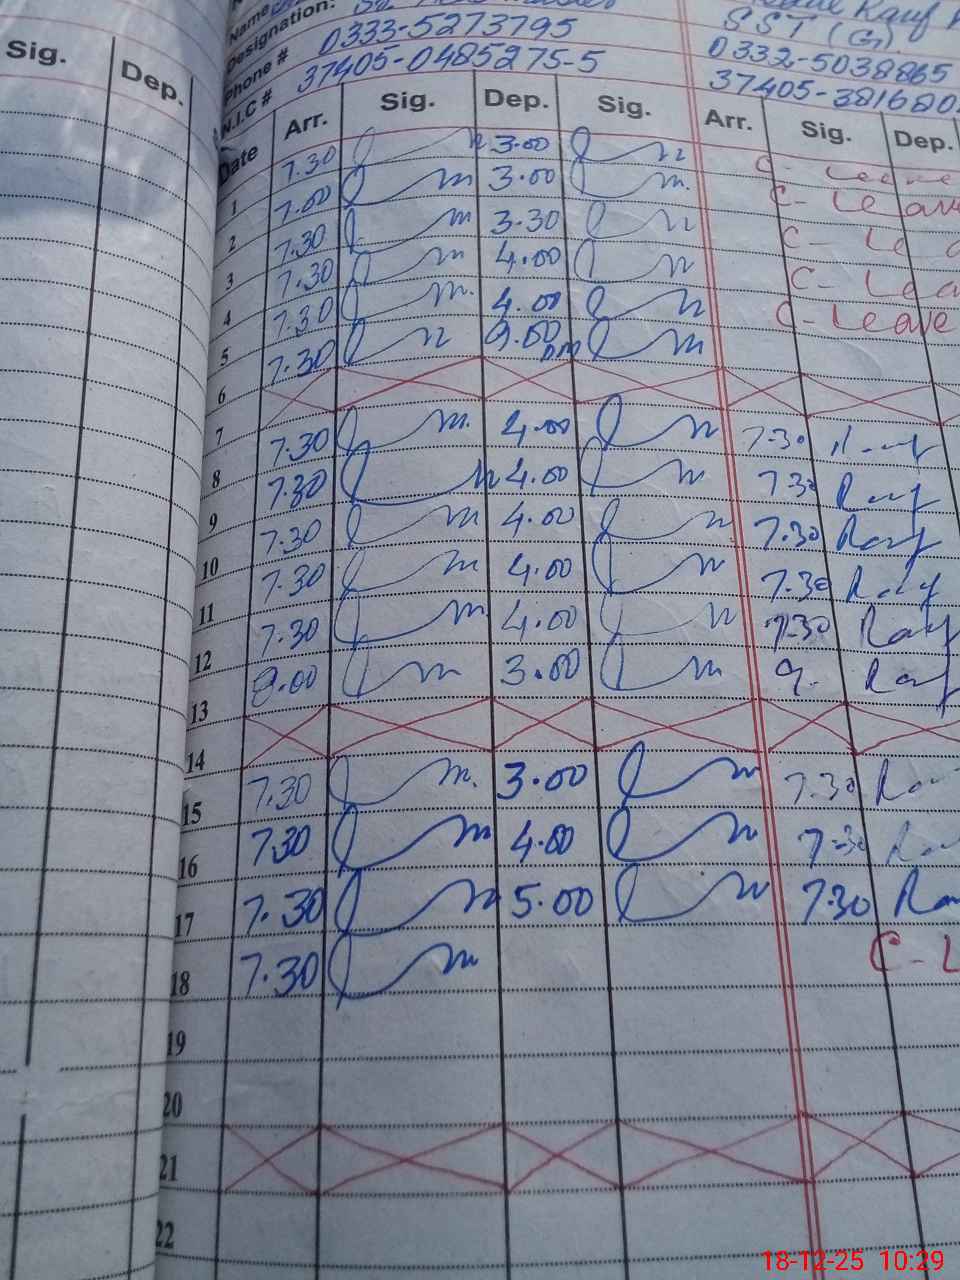 Sig. Dep.
Name
Designation:
Phone # 0333-5273795
N.I.C # 37405-0485275-5
Rauf
SST (G)
0332-5038865
37405-381680
Date Arr. Sig. Dep. Sig. Arr. Sig. Dep.
1 7.30 3.00 C- Leave
2 7.00 3.00 C- Leave
3 7.30 3.30 C- Lea
4 7.30 4.00 C- Lea
5 7.30 4.00 C- Leave
6 7.30 9.00 pm
7
8 7.30 4.00 7.30 Rauf
9 7.30 4.00 7.30 Rauf
10 7.30 4.00 7.30 Rauf
11 7.30 4.00 7.30 Rauf
12 7.30 4.00 7.30 Rauf
13 9.00 3.00 9. Rauf
14
15 7.30 3.00 7.30 Ra
16 7.30 4.00 7.30 Ra
17 7.30 5.00 7.30 Rau
18 7.30 C- L
19
20
21
22
18-12-25 10:29